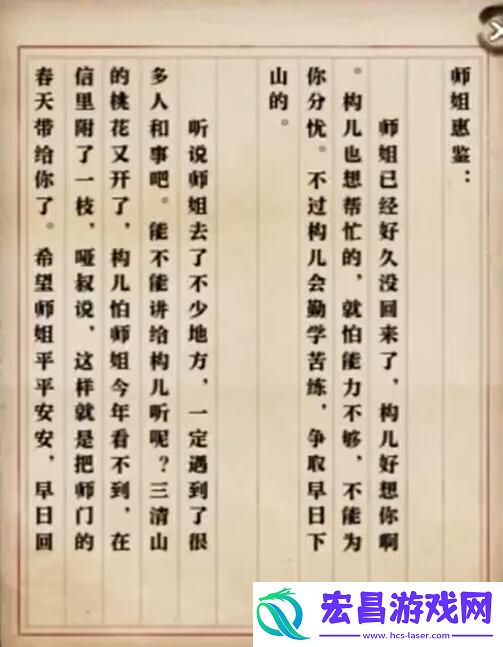 师姐惠鉴：
师姐已经好久没回来了，构儿好想你啊
。构儿也想帮忙的，就怕能力不够，不能为
你分忧。不过构儿会勤学苦练，争取早日下
山的。
听说师姐去了不少地方，一定遇到了很
多人和事吧。能不能讲给构儿听呢？三清山
的桃花又开了，构儿怕师姐今年看不到，在
信里附了一枝，哑叔说，这样就是把师门的
春天带给你了。希望师姐平平安安，早日回
宏昌游戏网
www.hcs-laser.com